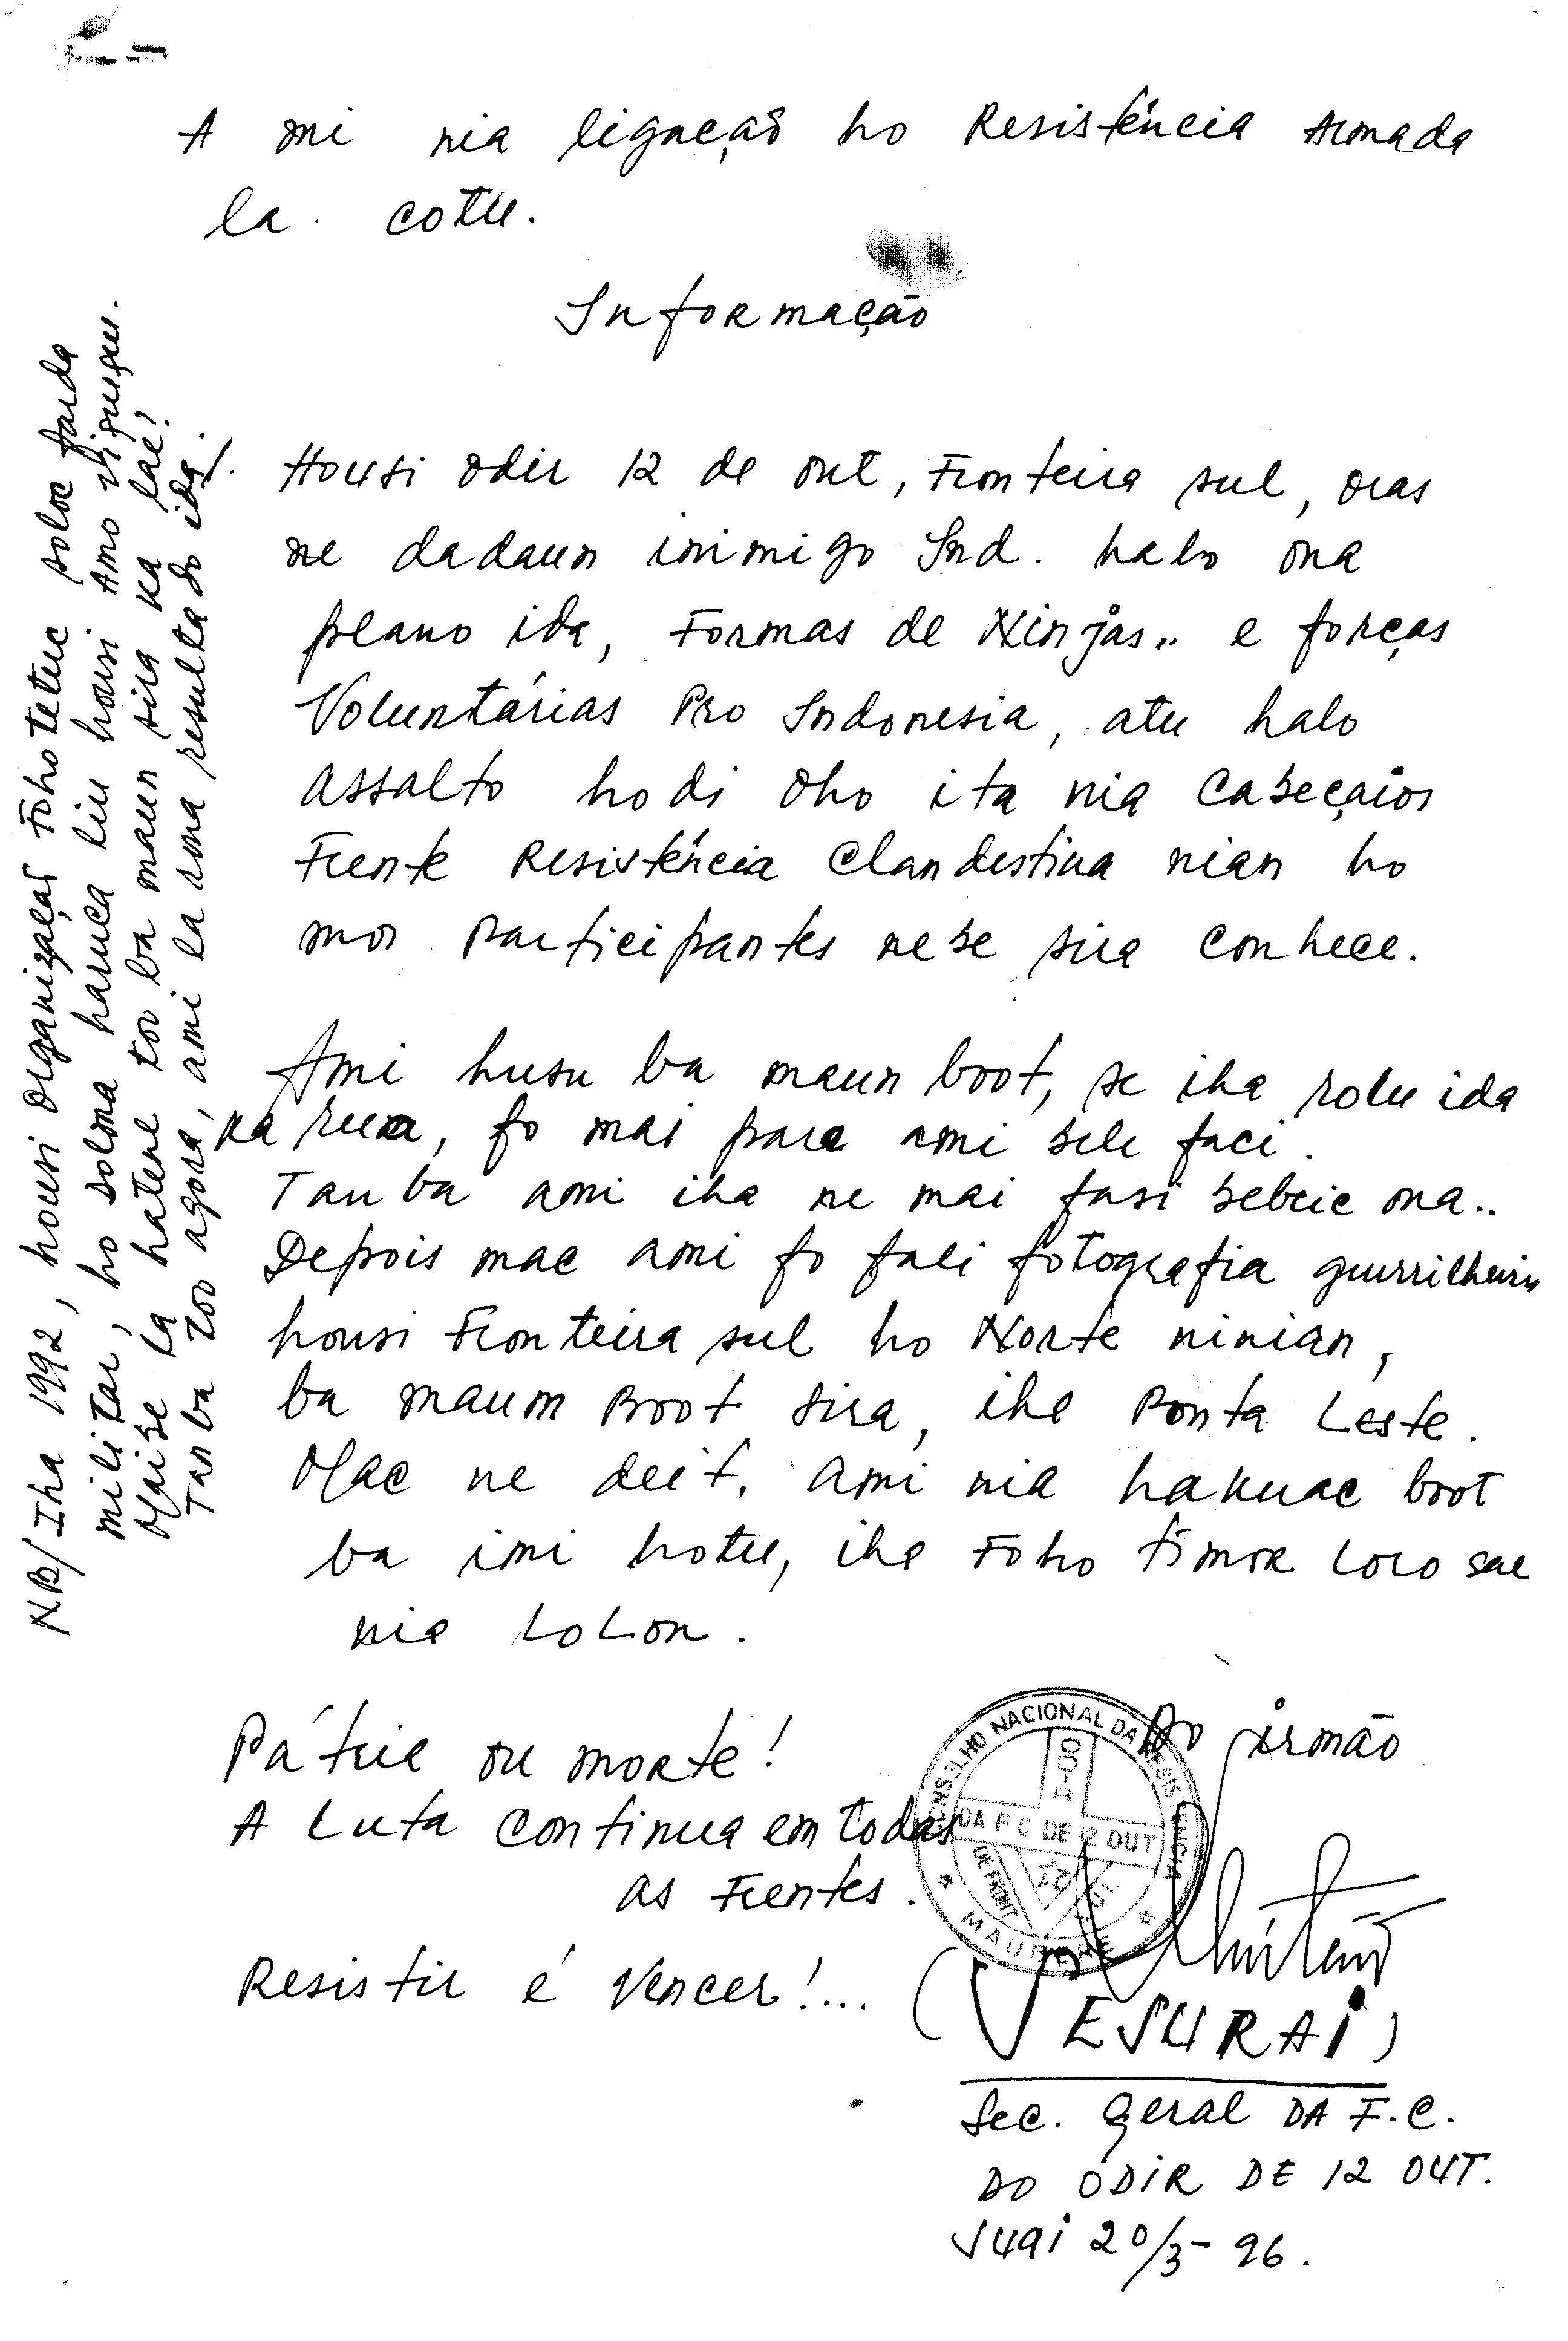 Ami nia ligação ho Resistência Armada
la cotu.
Informação
Housi Odir 12 de out, Fronteira sul, oras
ne dadaun inimigo Ind. halo ona
plano ida, Formas de Ninjas.. e forças
Voluntárias Pro Indonesia, atu halo
assalto hodi oho ita nia cabeçaios
Frente Resistência Clandestina nian ho
mos participantes nebe sira conhece.
Ami husu ba maun boot, se iha rolu ida
ka rua, fo mai para ami bele faci.
Tanba ami iha ne mai fasi bebeic ona..
Depois mac ami fo fali fotografia guerrilheiru
housi Fronteira sul ho Norte ninian,
ba maun Boot sira, iha Ponta Leste.
Mac ne deit. Ami nia hakuac boot
ba imi hotu, iha Foho Timor Loro sae
nia LoLon.
Pátria ou morte!
A Luta continua em todas
as Frentes.
Resistir é Vencer!...
Do irmão
(VESURAI)
Sec. Geral DA F.C.
DO ODIR DE 12 OUT.
Suai 20/3-96.
CONSELHO NACIONAL DA RESISTENCIA
MAUBERE
DA F C DE 12 OUT
DE FRONT
SUL
NB/ Iha 1992, housi Organização Fohoteruc soloc farda
militar, ho solma haruca liu housi Amo Viqueque.
Maibe la hatene too ba maun sira ka lae!
Tanba too agora, ami la sma resultado ida!.